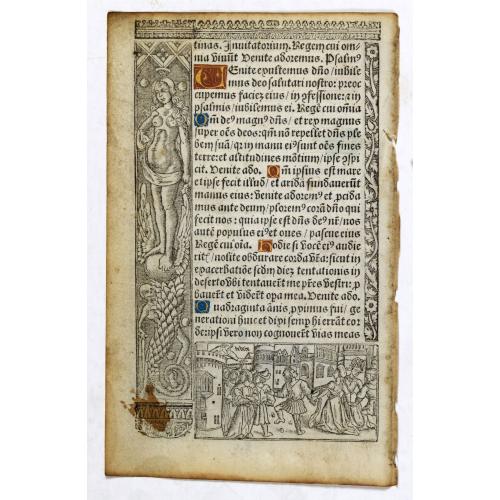 tinas. Inuitatorium. Regem cui om-
nia viuūt Venite adoremus. Psalmꝰ
VEnite exultemus dño / iubile
mus deo salutari nostro: preoc
cupemus faciē eius / in ꝯfessione: ⁊ in
psalmis / iubilemus ei. Regē cui omīa
Qm̄ deꝰ magnꝰ dñs / et rex magnus
super oēs deos: qm̄ nō repellet dñs ple
bem suā / qr in manu eiꝰ sunt oēs fines
terre: et altitudines mōtium / ipse ꝯspi
cit. Venite ado. Qm̄ ipsius est mare
et ipse fecit illud / et aridā fundauerūt
manus eius: venite adoremꝰ et ꝓcida
mus ante deum / ploremꝰ corā dño qui
fecit nos: quia ipse est dñs deꝰ nr̄ / nos
autē populus eiꝰ et oues / pascue eius
Regē cui oīa. Hodie si vocē eiꝰ audie
ritꝭ / nolite obdurare corda vr̄a: sicut in
exacerbatiōe scḋm diez tentationis in
deserto vbi tentauerūt me pr̄es vestri: ꝓ
bauerūt et viderūt opa mea. Venite ado.
Quadraginta ānis / ꝓximus fui / ge
nerationi huic et dixi semꝑ hi errāt cor
de: ipsi vero non cognouerūt vias meas